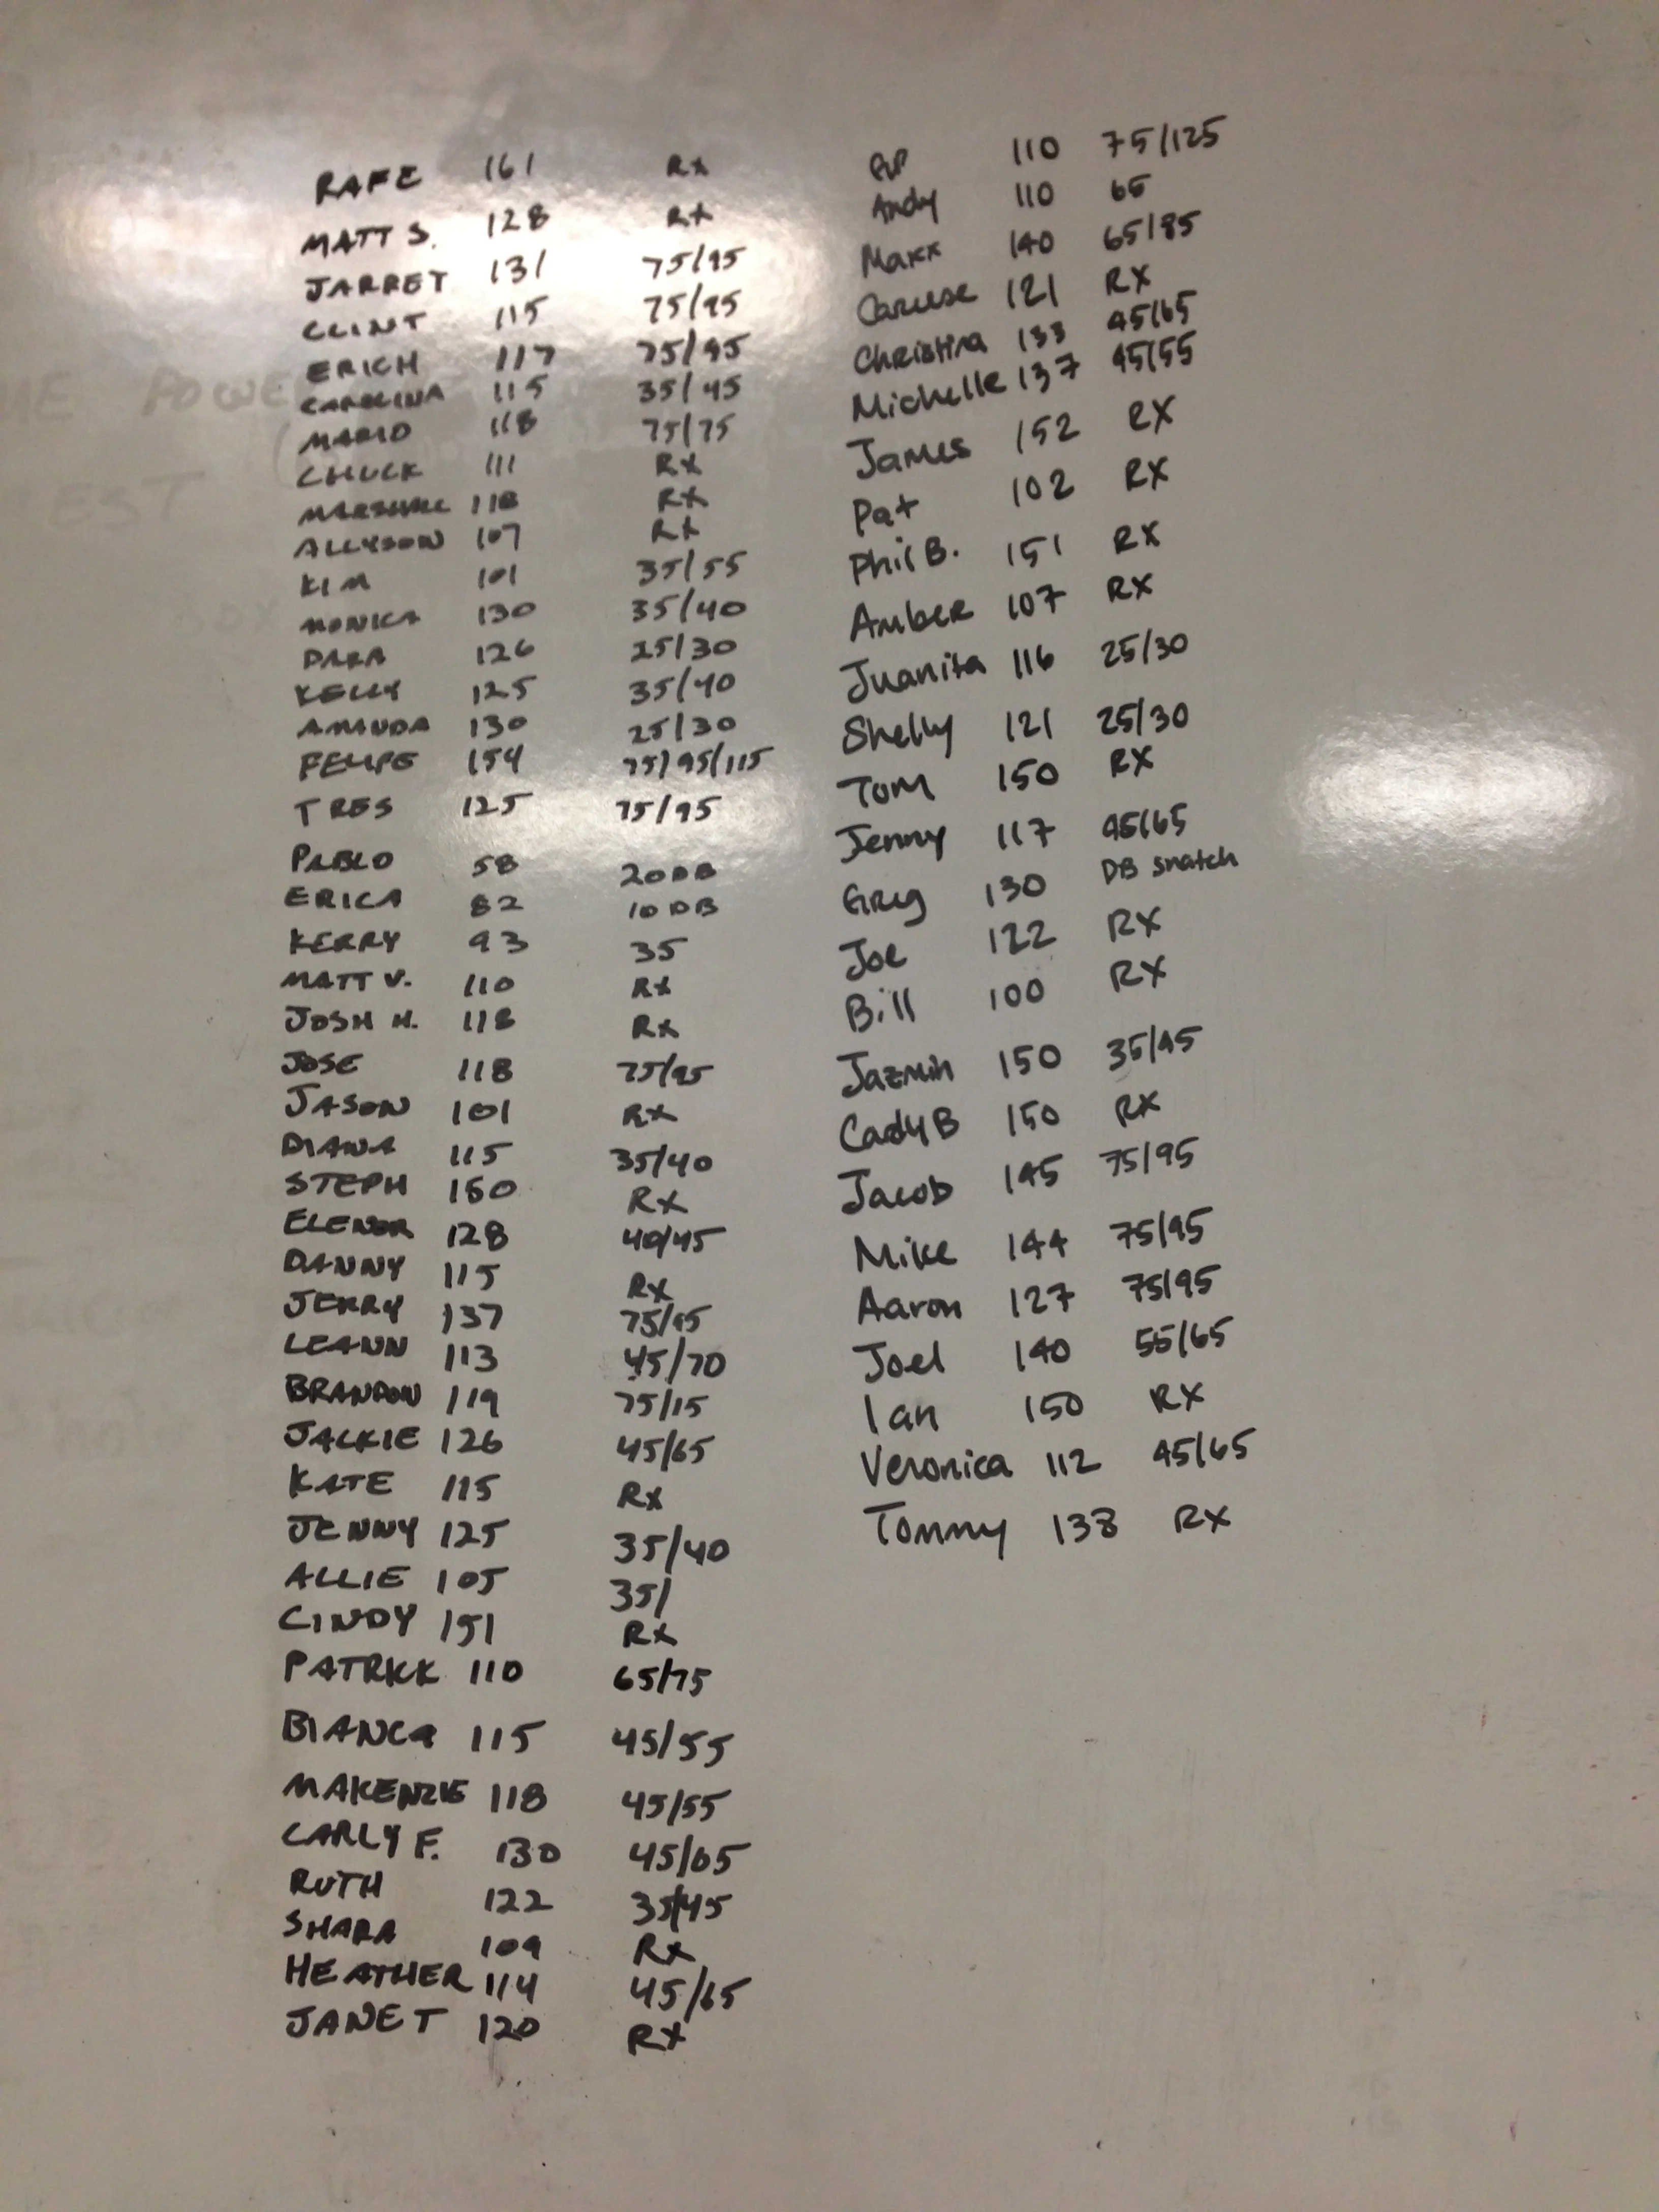 RAFE 161 Rx
MATT S. 128 Rx
JARRET 131 75/95
CLINT 115 75/95
ERICH 117 75/95
CAROLINA 115 35/45
MARIO 118 75/75
CHUCK 111 Rx
MARSHALL 118 Rx
ALLYSON 107 Rx
KIM 101 35/55
MONICA 130 35/40
DARA 126 25/30
KELLY 125 35/40
AMANDA 130 25/30
FELIPE 154 75/95/115
TRES 125 75/95
PABLO 58 20DB
ERICA 82 10DB
KERRY 93 35
MATT V. 110 Rx
JOSH H. 118 Rx
JOSE 118 75/95
JASON 101 Rx
DIANA 115 35/40
STEPH 150 Rx
ELENOR 128 40/45
DANNY 115 Rx
JERRY 137 75/95
LEANN 113 45/70
BRANDON 119 75/15
JACKIE 126 45/65
KATE 115 Rx
JENNY 125 35/40
ALLIE 105 35/
CINDY 151 Rx
PATRICK 110 65/75
BIANCa 115 45/55
MAKENZIE 118 45/55
CARLY F. 130 45/65
RUTH 122 35/45
SHARA 109 Rx
HEATHER 114 45/65
JANET 120 Rx
110 75/125
Andy 110 65
Maxx 140 65/85
Caruse 121 RX
Christina 133 45/65
Michelle 137 45/55
James 152 RX
Pat 102 RX
Phil B. 151 RX
Amber 107 RX
Juanita 116 25/30
Shelly 121 25/30
Tom 150 RX
Jenny 117 45/65
Greg 130 DB snatch
Joe 122 RX
Bill 100 RX
Jazmin 150 35/45
Cady B 150 RX
Jacob 145 75/95
Mike 144 75/95
Aaron 127 75/95
Joel 140 55/65
Ian 150 RX
Veronica 112 45/65
Tommy 138 RX